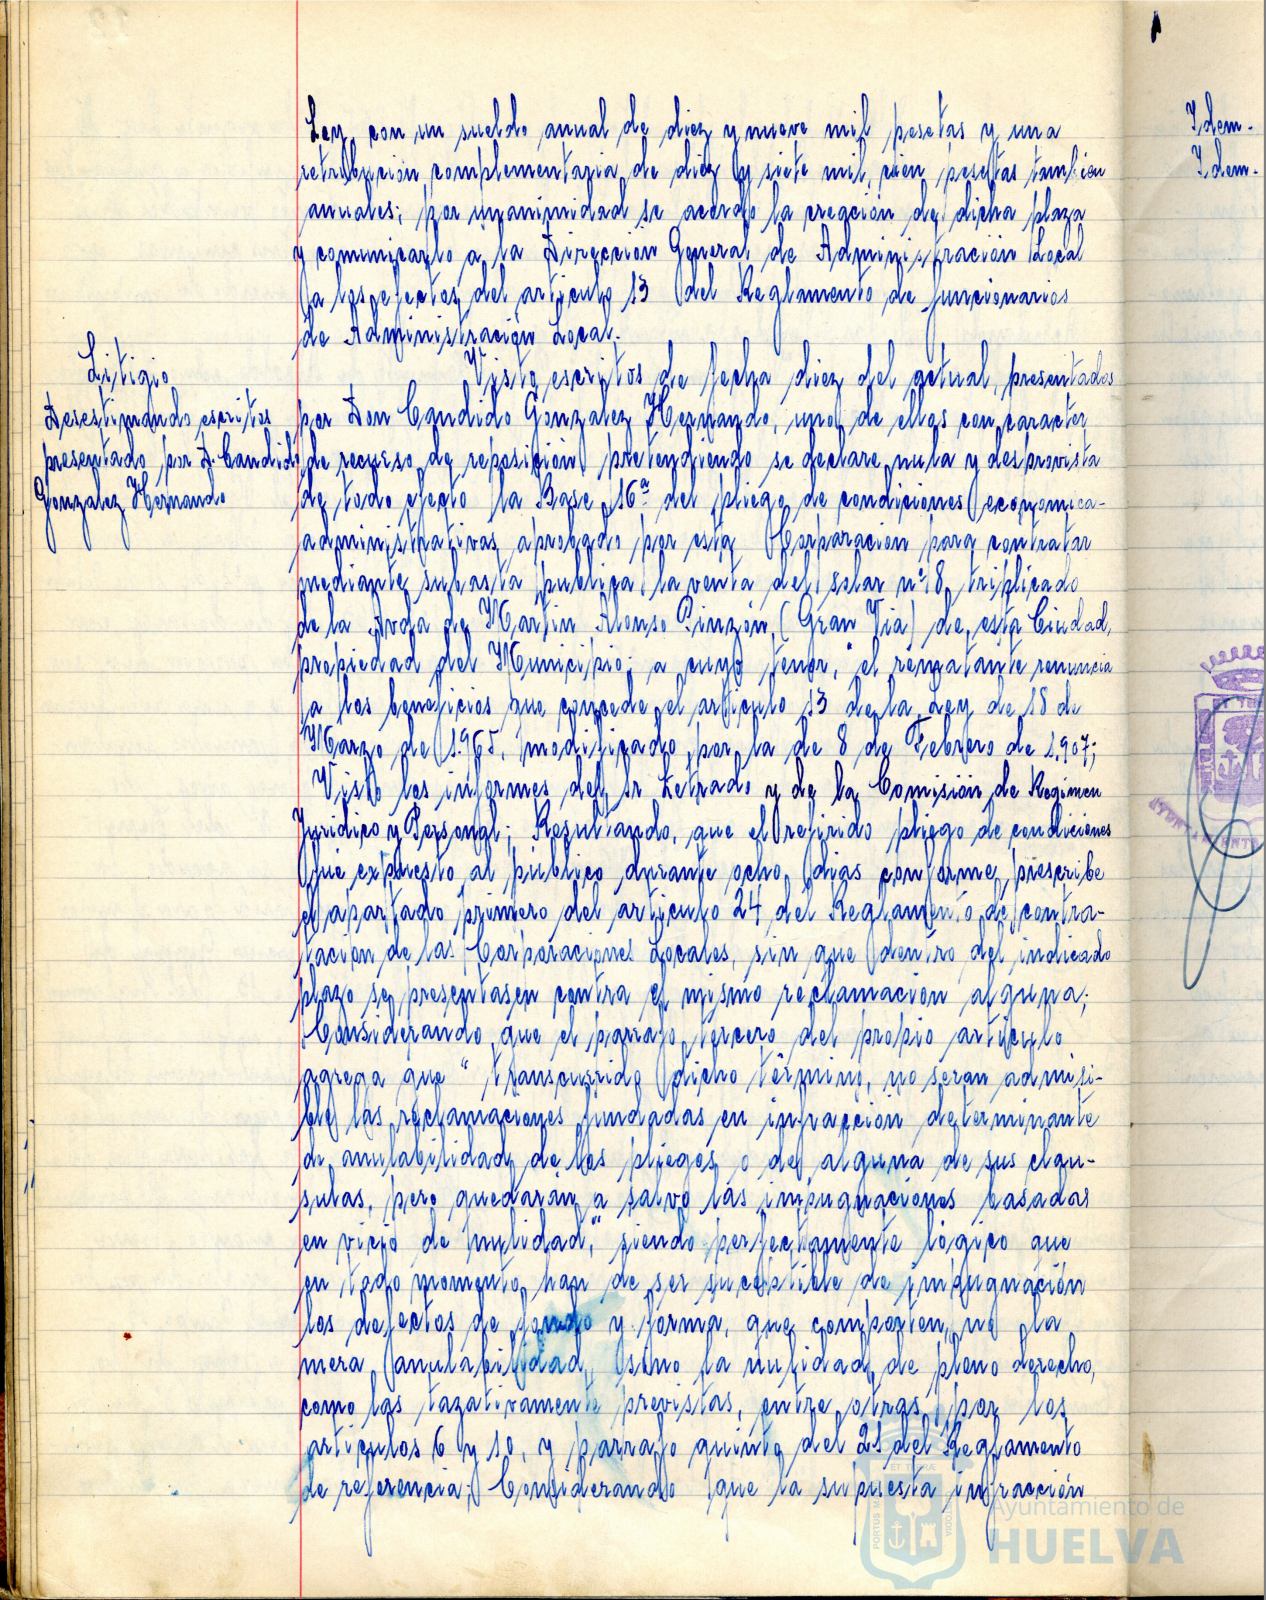 Ley, con un sueldo anual de diez y nueve mil pesetas y una
retribución complementaria de diez y siete mil cien pesetas tambien
anuales; por unanimidad se acordó la creación de dicha plaza
y comunicarlo a la Dirección General de Administración Local
a los efectos del articulo 13 del Reglamento de funcionarios
de Administración Local.
Litigio
Desestimando escritos
presentado por D. Candido
Gonzalez Hernando
Visto escritos de fecha diez del actual, presentados
por Don Candido Gonzalez Hernando, uno de ellos con caracter
de recurso de reposición pretendiendo se declare nula y desprovista
de todo efecto la Base 16ª del pliego de condiciones economica-
administrativas aprobado por esta Corporación para contratar
mediante subasta publica la venta del solar nº 8 triplicado
de la Avda de Martin Alonso Pinzón (Gran Via) de esta Ciudad,
propiedad del Municipio; a cuyo tenor, "el rematante renuncia
a los beneficios que concede el articulo 13 de la Ley de 18 de
Marzo de 1.965, modificado por la de 8 de Febrero de 1.907;
Visto los informes del Sr Letrado y de la Comisión de Regimen
Juridico y Personal; Resultando, que el referido pliego de condiciones
fué expuesto al publico durante ocho dias conforme prescribe
el apartado primero del articulo 24 del Reglamento de contra-
tación de las Corporaciones Locales, sin que dentro del indicado
plazo se presentasen contra el mismo reclamación alguna;
Considerando que el parrafo tercero del propio articulo
agrega que "transcurrido dicho término, no seran admisi-
ble las reclamaciones fundadas en infracción determinante
de anulabilidad de los pliegos o de alguna de sus clau-
sulas, pero quedarán a salvo las impugnaciones basadas
en vicio de nulidad," siendo perfectamente lógico que
en todo momento han de ser suceptible de impugnación
los defectos de fondo y forma, que comporten, no la
mera anulabilidad, sino la nulidad de pleno derecho,
como las tazativamente previstas, entre otras, por los
articulos 6 y 10, y parrafo quinto del 21 del Reglamento
de referencia; Considerando que la supuesta infracción
Idem-
Idem-
Ayuntamiento de
HUELVA